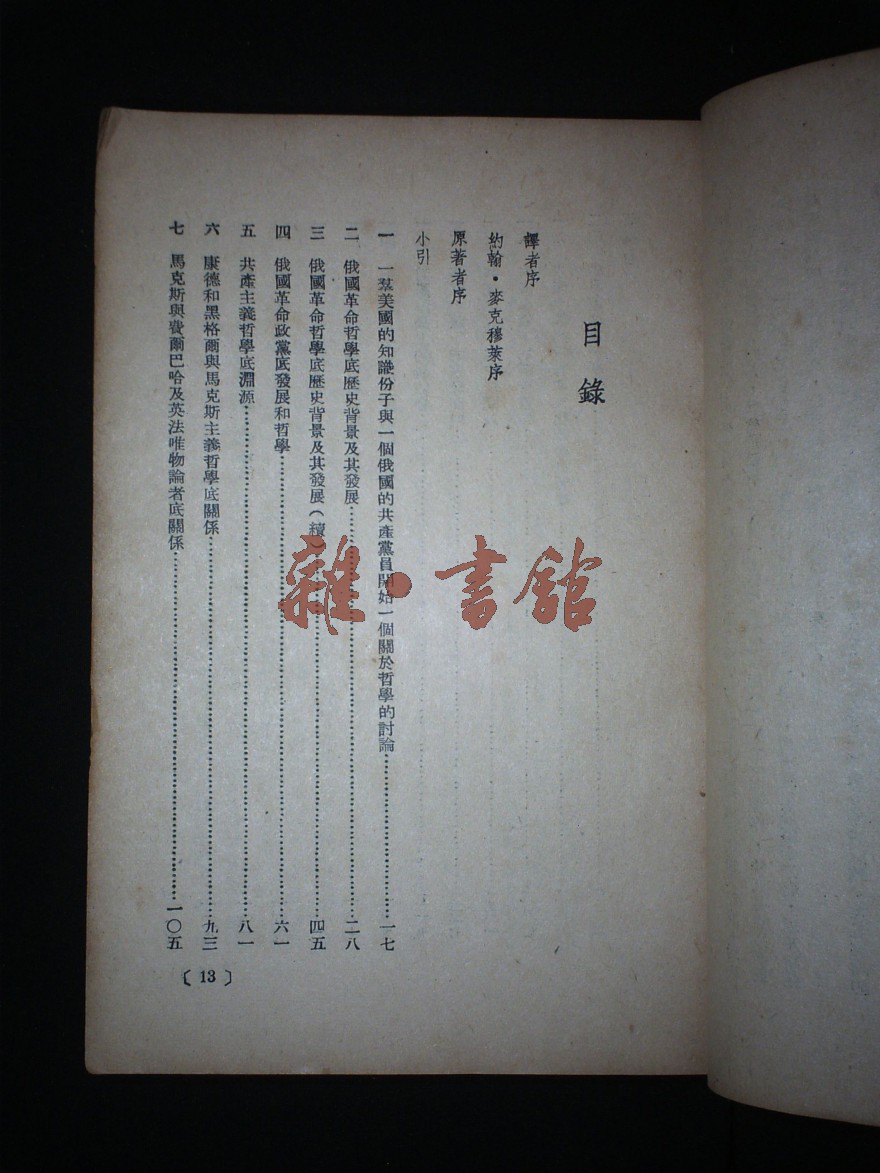 目錄
譯者序
約翰•麥克穆萊序
原著者序
小引
一 一羣美國的知識份子與一個俄國的共產黨員開始一個關於哲學的討論……一七
二 俄國革命哲學底歷史背景及其發展……二八
三 俄國革命哲學底歷史背景及其發展(續)……四五
四 俄國革命政黨底發展和哲學……六一
五 共產主義哲學底淵源……八一
六 康德和黑格爾與馬克斯主義哲學底關係……九三
七 馬克斯與費爾巴哈及英法唯物論者底關係……一〇五
〔13〕
雜•書館